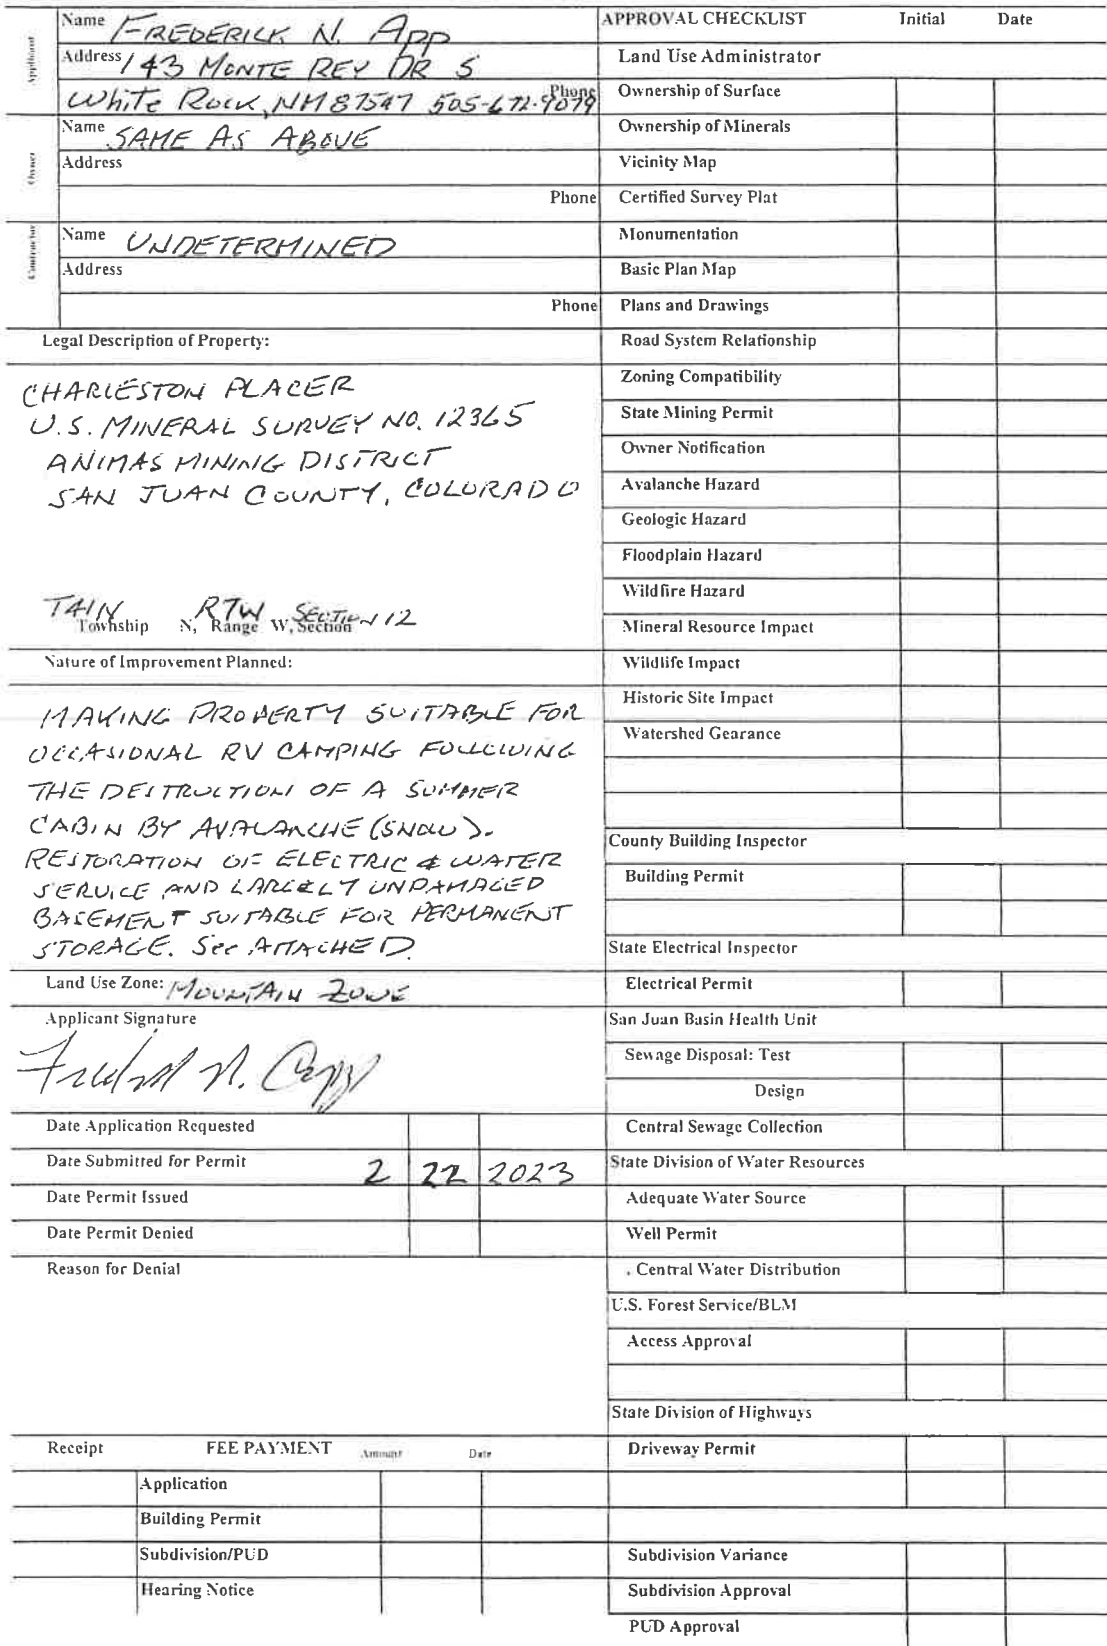 Applicant
Name FREDERICK N. APP
Address 143 MONTE REY DR S
White Rock, NM 87547 505-672-9079 Phone
Owner
Name SAME AS ABOVE
Address
Phone
Contractor
Name UNDETERMINED
Address
Phone
Legal Description of Property:
CHARLESTON PLACER
U.S. MINERAL SURVEY NO. 12365
ANIMAS MINING DISTRICT
SAN JUAN COUNTY, COLORADO
T41N R7W SECTION 12
Township N, Range W, Section
Nature of Improvement Planned:
MAKING PROPERTY SUITABLE FOR
OCCASIONAL RV CAMPING FOLLOWING
THE DESTRUCTION OF A SUMMER
CABIN BY AVALANCHE (SNOW).
RESTORATION OF ELECTRIC & WATER
SERVICE AND LARGELY UNDAMAGED
BASEMENT SUITABLE FOR PERMANENT
STORAGE. See ATTACHED.
Land Use Zone: MOUNTAIN ZONE
Applicant Signature
Frederick N. App
Date Application Requested
Date Submitted for Permit 2 22 2023
Date Permit Issued
Date Permit Denied
Reason for Denial
Receipt FEE PAYMENT Amount Date
Application
Building Permit
Subdivision/PUD
Hearing Notice
APPROVAL CHECKLIST Initial Date
Land Use Administrator
Ownership of Surface
Ownership of Minerals
Vicinity Map
Certified Survey Plat
Monumentation
Basic Plan Map
Plans and Drawings
Road System Relationship
Zoning Compatibility
State Mining Permit
Owner Notification
Avalanche Hazard
Geologic Hazard
Floodplain Hazard
Wildfire Hazard
Mineral Resource Impact
Wildlife Impact
Historic Site Impact
Watershed Gearance
County Building Inspector
Building Permit
State Electrical Inspector
Electrical Permit
San Juan Basin Health Unit
Sewage Disposal: Test
Design
Central Sewage Collection
State Division of Water Resources
Adequate Water Source
Well Permit
. Central Water Distribution
U.S. Forest Service/BLM
Access Approval
State Division of Highways
Driveway Permit
Subdivision Variance
Subdivision Approval
PUD Approval